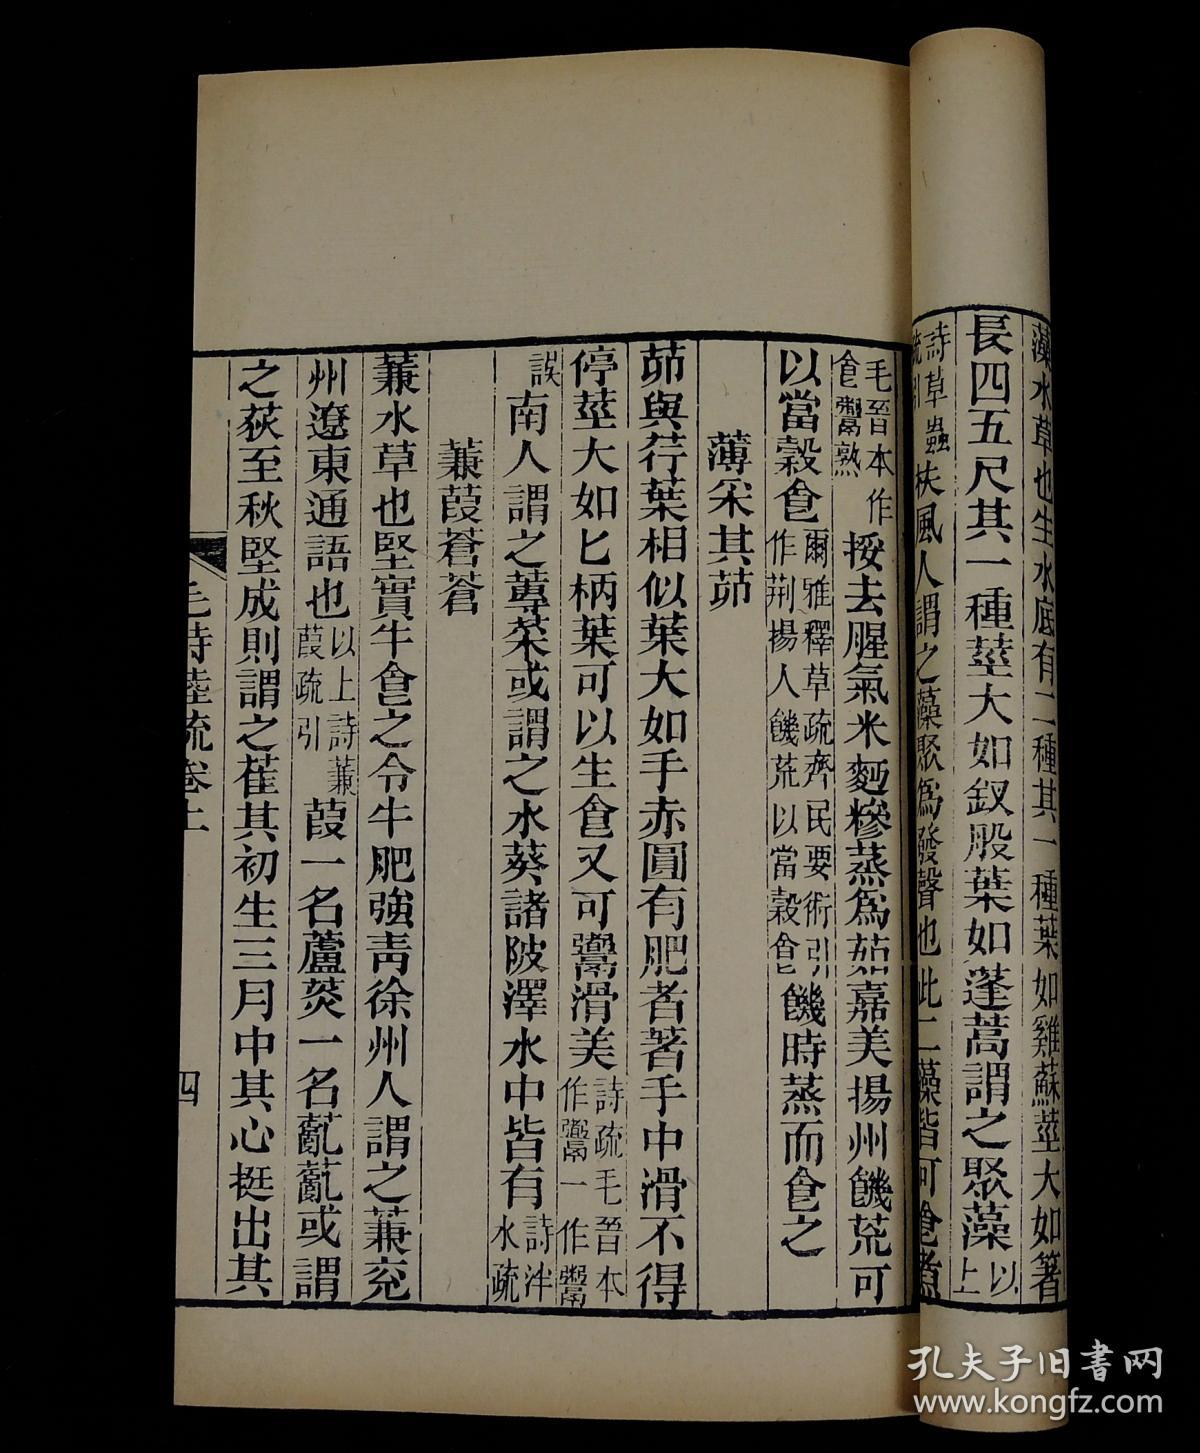 藻水草也生水底有二種其一種葉如雞蘇莖大如箸
長四五尺其一種莖大如釵股葉如蓬蒿謂之聚藻以上
詩草蟲疏引扶風人謂之藻聚爲發聲也此二藻皆可食煮
毛晉本作食鬻熟挼去腥氣米麪糝蒸爲茹嘉美揚州饑荒可
以當穀食爾雅釋草疏齊民要術引作荆揚人饑荒以當穀食饑時蒸而食之
薄采其茆
茆與荇葉相似葉大如手赤圓有肥者著手中滑不得
停莖大如匕柄葉可以生食又可鬻滑美詩疏毛晉本作鬻一作鬻
誤南人謂之蓴菜或謂之水葵諸陂澤水中皆有詩泮水疏
蒹葭蒼蒼
蒹水草也堅實牛食之令牛肥強青徐州人謂之蒹兖
州遼東通語也以上詩蒹葭疏引葭一名蘆菼一名薍薍或謂
之荻至秋堅成則謂之萑其初生三月中其心挺出其
毛詩陸疏卷上
四
孔夫子旧書网
www.kongfz.com